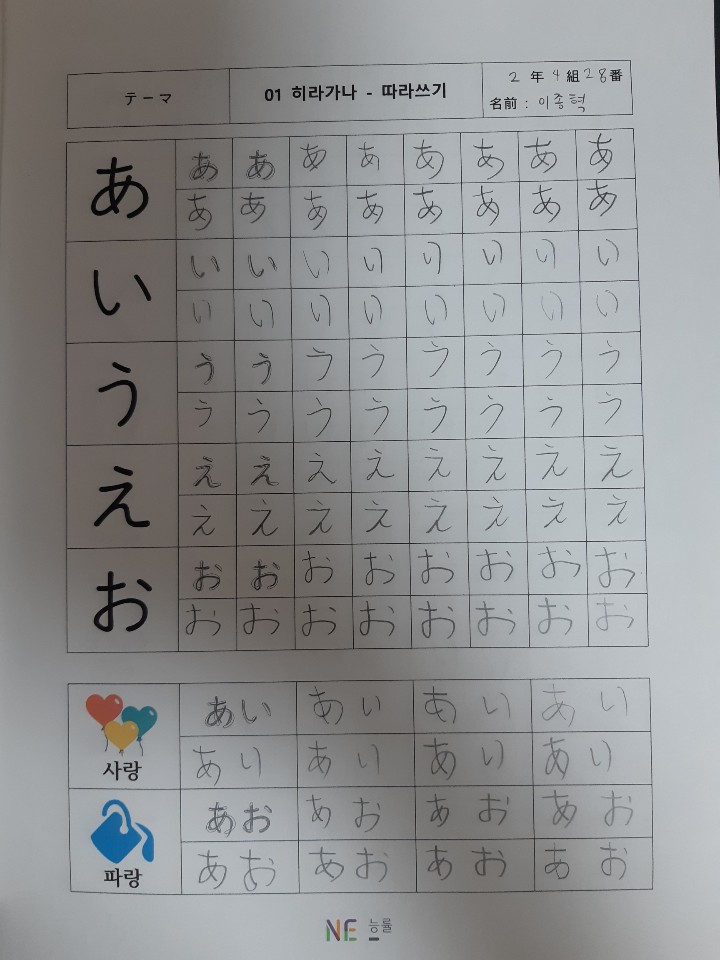 テーマ 01 히라가나 - 따라쓰기 2 年 4 組 28番
名前 : 이종혁
あ あ あ あ あ あ あ あ あ
あ あ あ あ あ あ あ あ
い い い い い い い い い
い い い い い い い い
う う う う う う う う う
う う う う う う う う
え え え え え え え え え
え え え え え え え え
お お お お お お お お お
お お お お お お お お
あい あい あい あい
사랑 あい あい あい あい
あお あお あお あお
파랑 あお あお あお あお
NE 능률